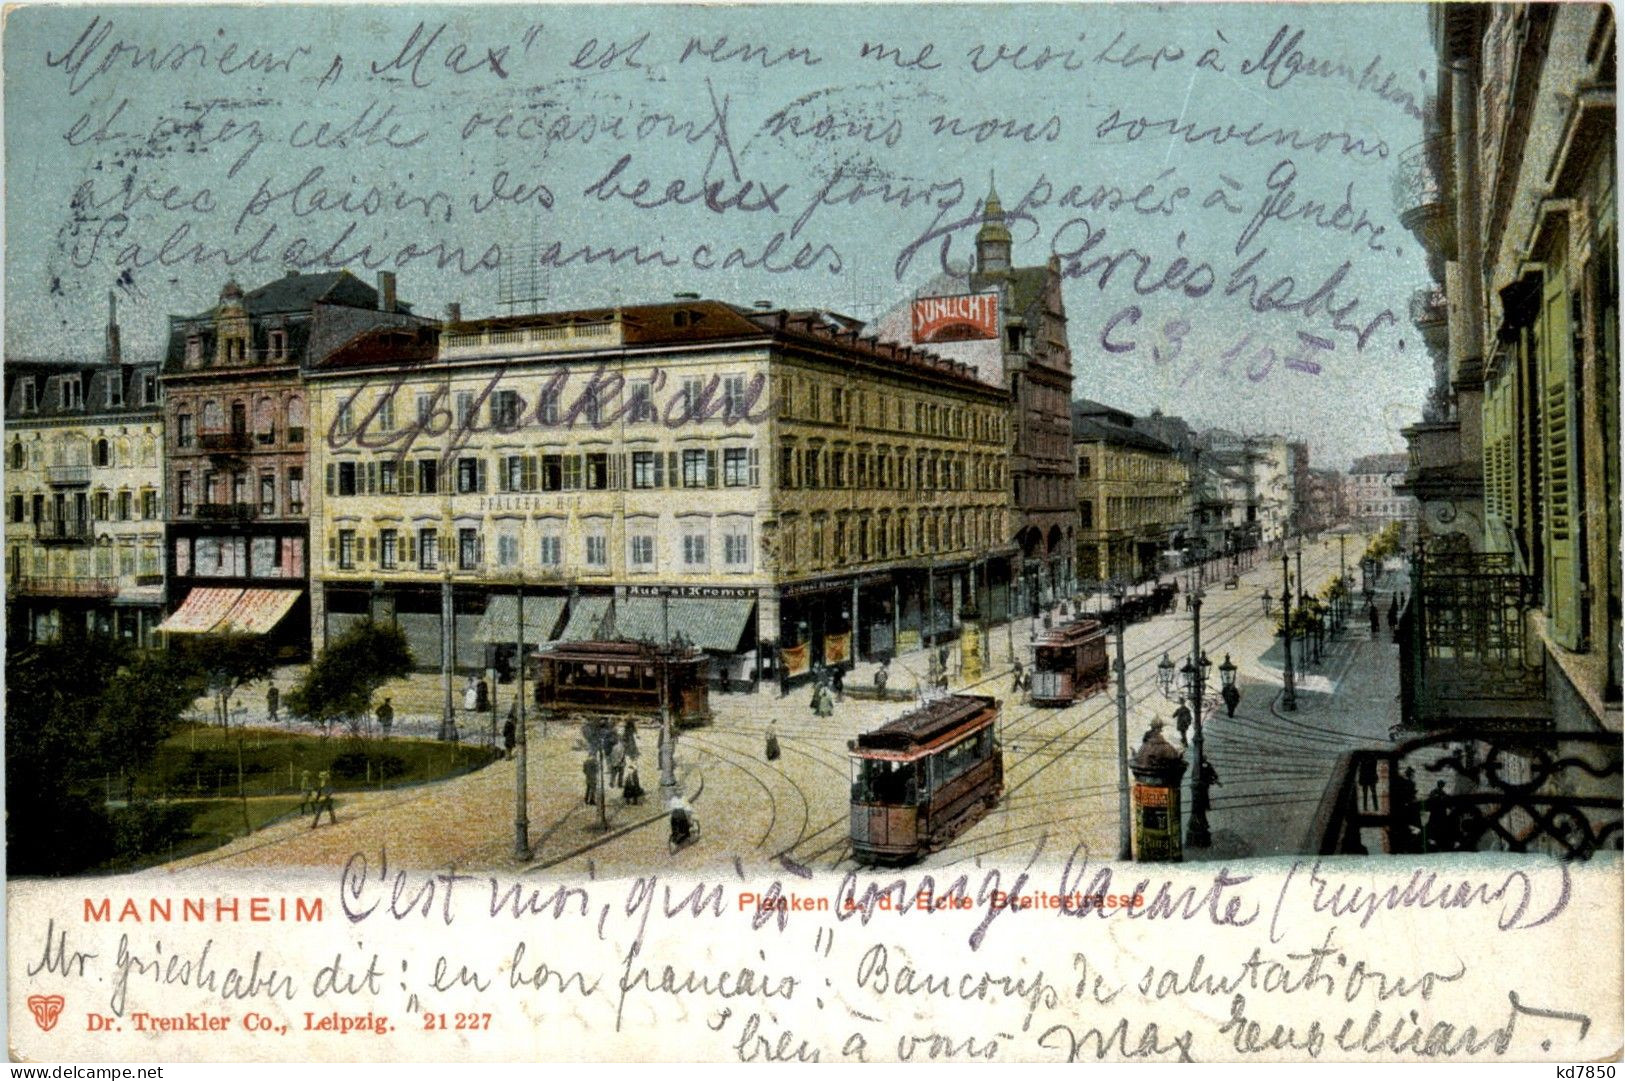 Monsieur „Max" est venu me visiter à Mannheim
et chez cette occasion nous nous souvenons
avec plaisir, des beaux jours, passés à Genève.
Salutations amicales K Grieshaber
C 3, 10 II
SUNLICHT
Apfelküchle
PFÄLZER-HOF
August Kremer
C'est moi, qui à corrigé la carte
MANNHEIM
Planken a. d. Ecke Breitestrasse
Mr. Grieshaber dit: „en bon francais": Baucoup de salutations
Dr. Trenkler Co., Leipzig. 21 227
bien à vous Max
delcampe.net
kd7850